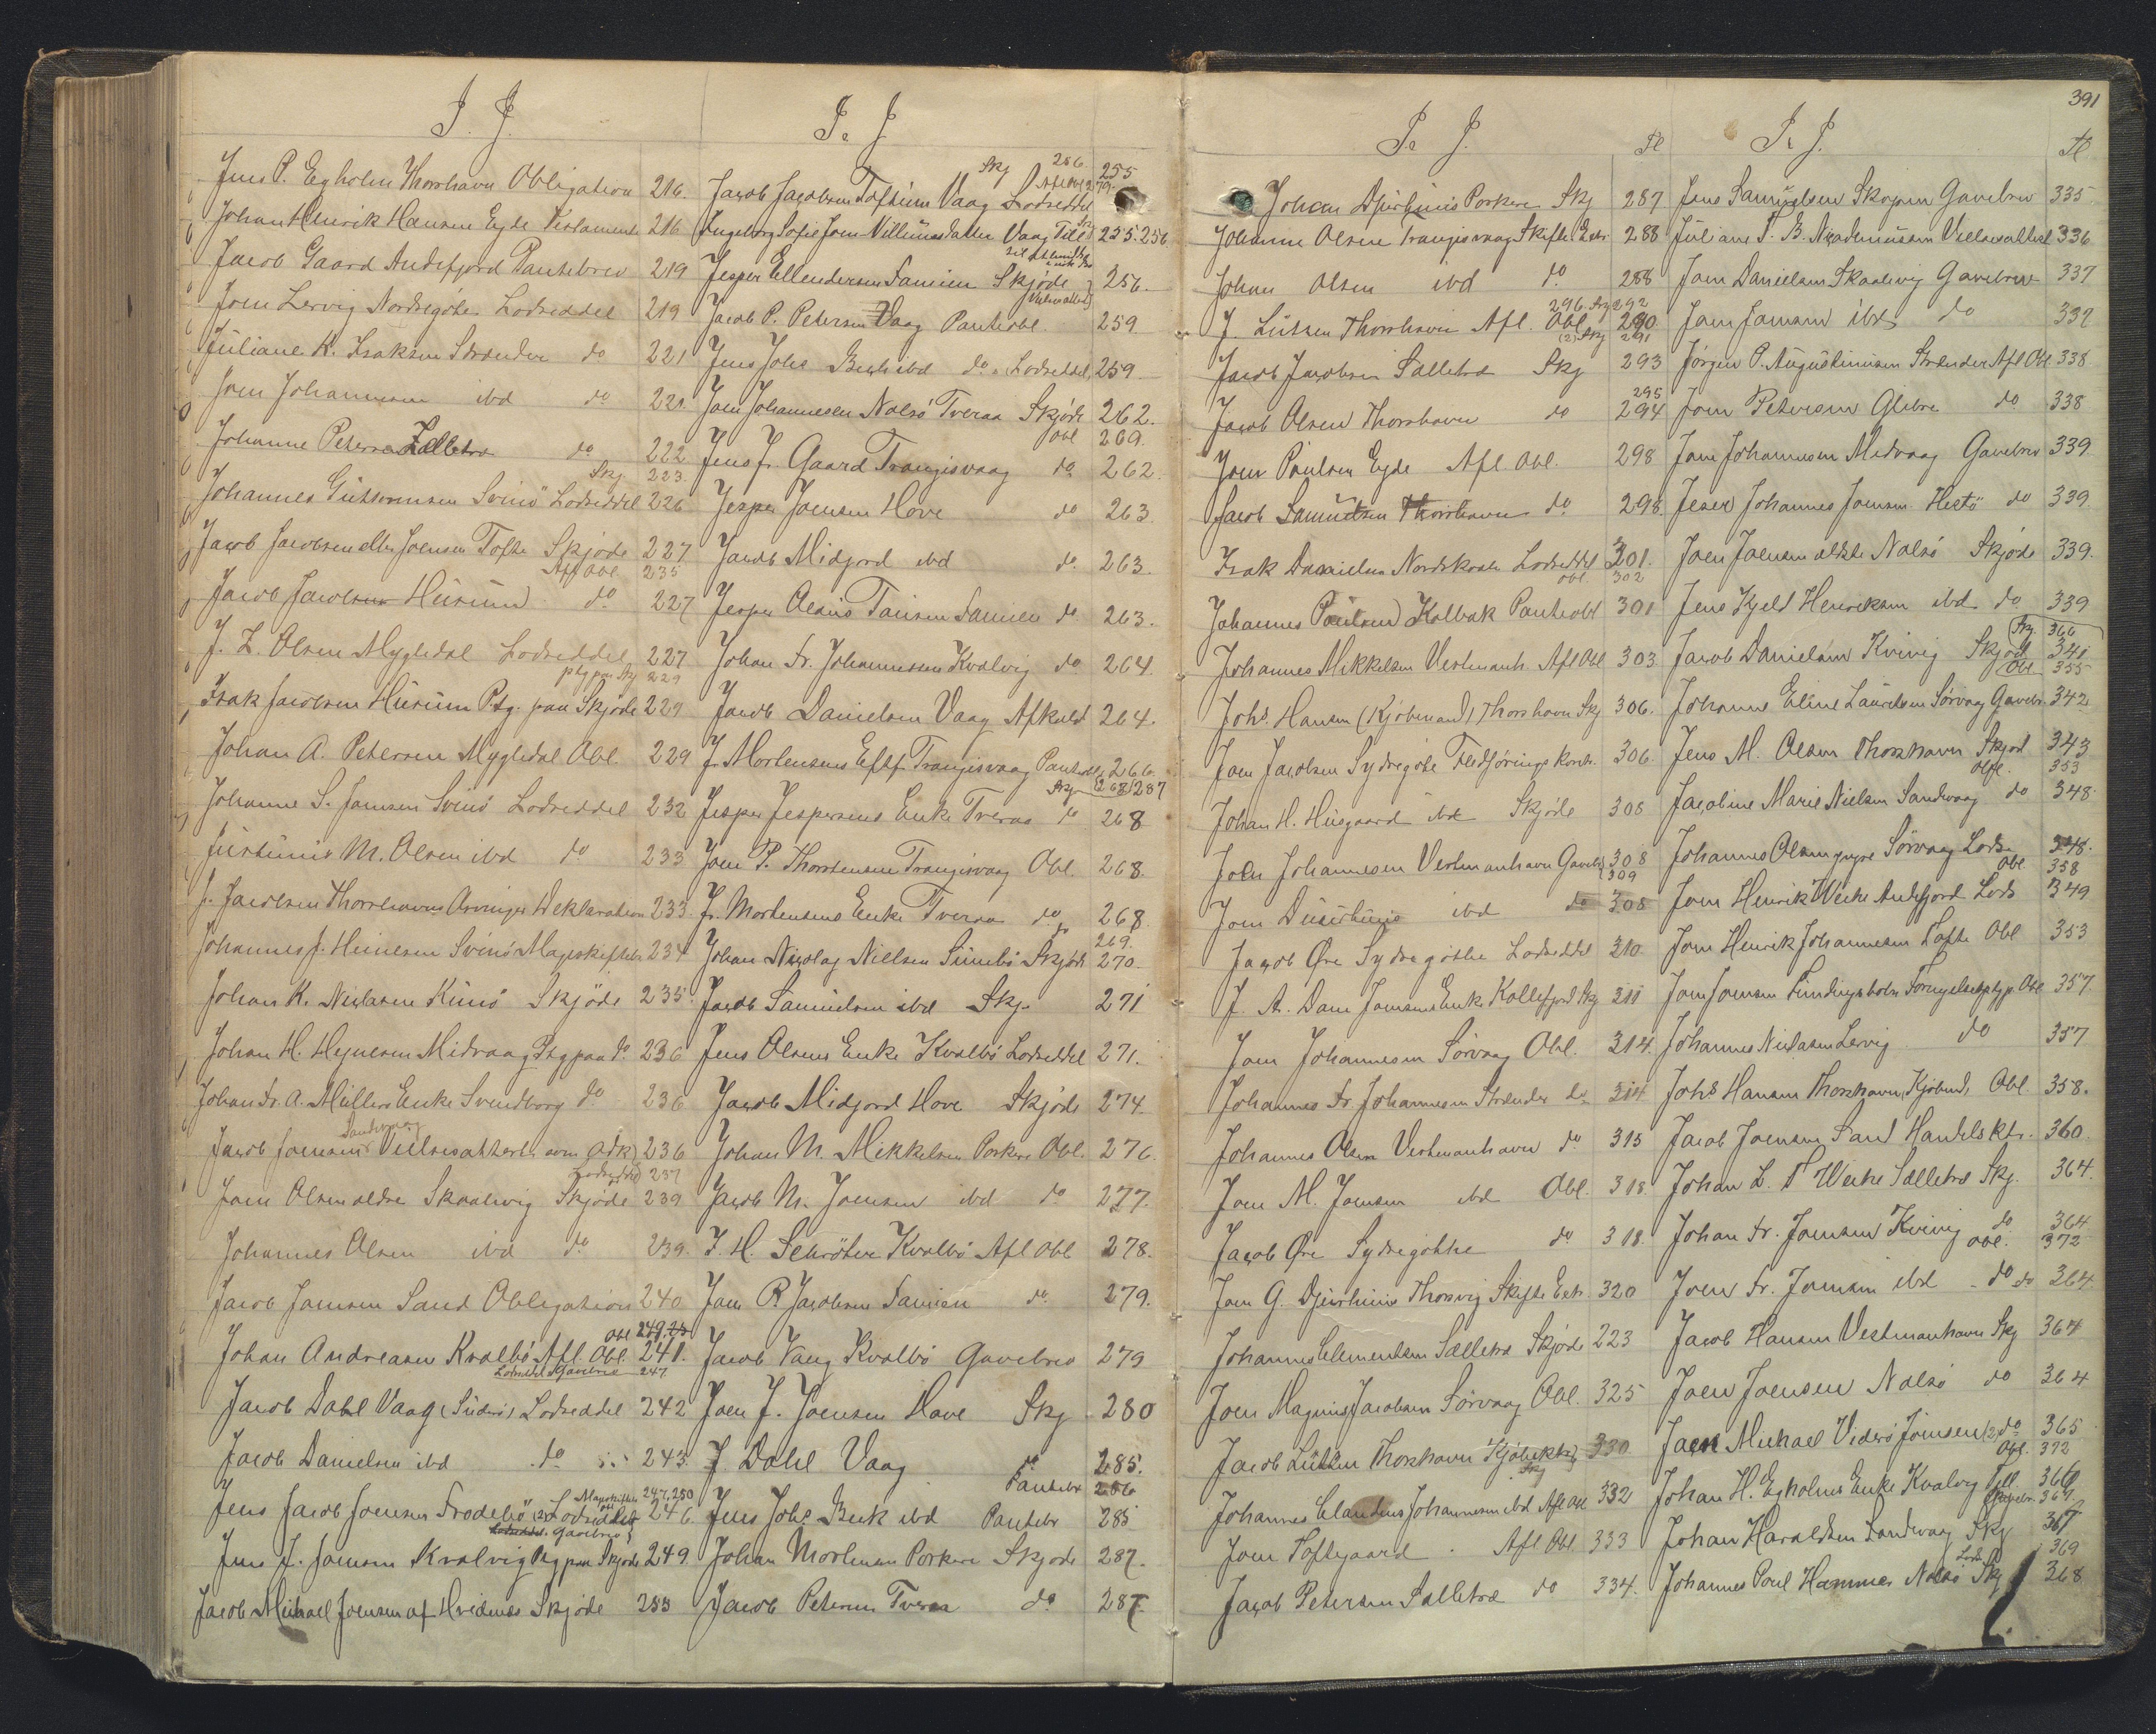 J. J.
Jens P. Egholm Thorshavn Obligation 216
Johan Henrik Hansen Eyde Testamente 216
Jacob Gaard Andefjord Pantebrev 219
Joen Lervig Nordregöte Lodseddel 219
Juliane K. Isaksen Strender do 221
Joen Johannesen ibd do 221
Johanne Petersen Selletræ do 222
Skj 223
Johannes Guttormsen Svinö Lodseddel 226
Jacob Jacobsen eller Joensen Tofte Skjöde 227
Afl Obl 235
Jacob Jacobsen Húsum do 227
J. Z. Olsen Mygledal Lodseddel 227
ptg paa Skj 229
Isak Jacobsen Húsum Ptg. paa Skjöde 229
Johan A. Petersen Mygledal Obl. 229
Johanne S. Joensen Svinö Lodseddel 232
Justinus M. Olsen ibd do 233
J. Jacobsen Thorshavn Arvinger Deklaration 233
Johannes J. Heinesen Svinö Mageskiftebr 234
Johan K. Niclasen Kunö Skjöde 235
Johan H. Hejnesen Midvaag Ptg paa do 236
Johan Fr. A. Müllers Enke Svendborg do 236
Sandevaag
Jacob Joensen Vielsesattest som adk 236
Lodseddel 237
Joen Olsen ældre Skaalevig Skjöde 239
Johannes Olsen ibd do 239.
Jacob Joensen Sand Obligation 240
Obl 249.
Johan Andreasen Kvalbö Afl. Obl. 241.
Lodseddel Gavebrev 247
Jacob Dahl Vaag (Suderö) Lodseddel 242
Jacob Danielsen ibd do 243.
Mageskifte 247, 250
Jens Jacob Joensen Frodebö (2) Lodseddel 246
Lodseddel. Gavebrev
Jens J. Joensen Kvalvig Ptg paa Skjöde 249.
Jacob Michael Joensen af Hvidenæs Skjöde 253
J. J.
Skj 286. 255
Jacob Jacobsen Toftum Vaag Lodseddel
Ingeborg Sofie Joen Villumsdatter Vaag 255. 256
Jesper Ellendersen Famien Skjöde 256.
Vielsesattest
Jacob P. Petersen Vaag Panteobl. 259.
Jens Johs Beck ibd do. Lodseddel 259
Joen Johannesen Nolsö Tveraa Skjöde 262.
Obl 269.
Jens Jr. Gaard Trangisvaag do 262.
Jesper Joensen Hove do 263.
Jacob Midjord ibd do 263.
Jesper Olsens Famien do 263.
Johan Fr. Johannesen Kvalvig do 264.
Jacob Danielsen Vaag Afkald 264.
J. Mortensens Eftf Trangisvaag Panteobl. 266.
Skj 268/287
Jesper Jespersens Enke Tveraa do 268
Joen P. Thorstensen Trangisvaag Obl. 268.
Jr. Mortensens Enke Tveraa do 268
269.
Johan Nicolaj Nielsen Sumbö Skjöde 270.
Jacob Samuelsen ibd Skj. 271
Jens Olsens Enke Kvalbö Lodseddel 271.
Jacob Midjord Hove Skjöde 274.
Johan M. Mikkelsen Porkere Obl. 276.
Jacob M. Joensen ibd do 277.
J. H. Schröter Kvalbö Afl Obl 278.
Joen P. Jacobsen Famien do. 279.
Jacob Vang Kvalbö Gavebrev 279
Joen J. Joensen Hove Skj 280
J. Dahl Vaag do 285.
Pantebr 286
Jens Johs Beck ibd Pantebr 285
Johan Mortensen Porkere Skjöde 287.
Jacob Petersen Tveraa do 287.
J. J. Fl
Johan Djurhuus Porkere Skj 287
Johanne Olsen Trangisvaag Skifte Extr. 288
Johan Olsen ibd do 288
296. Skj 292
J. Lutzen Thorshavn Afl. Obl 290.
(2) Skj 291
Jacob Jacobsen Selletræ Skj 293
295
Jacob Olsen Thorshavn do 294
Joen Poulsen Eyde Afl. Obl. 298
Jacob Samuelsen Thorshavn do 298.
Isak Danielsen Nordskaale Lodseddel 301.
Obl 302
Johannes Poulsen Kolbak Panteobl 301
Johannes Mikkelsen Vestmanh. Afl Obl 303
Johs. Hansen (Kjöbmand) Thorshavn Skj 306.
Joen Jacobsen Sydregöte Fledförings Kontr. 306.
Johan H. Husgaard ibd Skjöde 308
Joen Johannesen Vestmanhavn Gavebr 308
309
Joen Djurhuus ibd do 308
Jacob Öre Sydregöthe Lodseddel 310.
J. A. Dam Joensens Enke Kollefjord Skj 311
Joen Johannesen Sörvaag Obl. 314.
Johannes Fr Johannesen Strender do 314
Johannes Olsen Vestmanhavn do 315
Joen M. Joensen ibd Obl. 318.
Jacob Öre Sydregöthe do 318.
Joen G. Djurhuus Thorsvig Skifte Extr. 320
Johannes Clementsen Selletræ Skjöde 223
Joen Magnus Jacobsen Sörvaag Obl. 325
Jacob Lützen Thorshavn Kjöbektr. 330
Skj
Johannes Claudius Johannesen ibd Afl Obl 332
Joen Toftegaard Afl Obl. 333
Jacob Petersen Selletræ do 334.
391
J. J. Fl.
Jens Samuelsen Skopun Gavebrev 335
Juliane S. B. Nicodemussen Vielsesattest 336
Joen Danielsen Skaalevig Gavebrev 337
Joen Joensen ibd do 337
Jörgen P. Augustinussen Strender Afl Obl 338
Joen Petersen Glibre do 338
Joen Johannesen Midvaag Gavebrev 339.
Johannes Joensen Hestö do 339.
Joen Joensen ældste Nolsö Skjöde 339.
Jens Kjeld Henriksen ibd do 339
Skj. 366
Jacob Danielsen Kvivig Skjöd 341
Obl 355
Johanne Eline Lauridsen Sörvaag Gavebr. 342
Jens M. Olsen Thorshavn Skjöd 343
Obl. 353
Jacobine Marie Nielsen Sandevaag do 348
Johannes Olsen yngre Sörvaag Lods. 348.
Obl. 358
Joen Henrik Weihe Andefjord Lods 349
Joen Henrik Johannesen Tofte Obl 353
Joen Joensen Fundingsbotn Fornyelsesptg p. Obl 357.
Johannes Niclasen Lervig do 357
Johs Hansen Thorshavn, Kjöbmd, Obl. 358.
Jacob Joensen Sand Handelsktr. 360.
Johan L. T Weihe Selletræ Skj. 364.
Johan Fr. Joensen Kvivig do 364
Obl. 372
Joen Fr. Joensen ibd do do 364.
Jacob Hansen Vestmanhavn Skj 364
Joen Joensen Nolsö do 364
Jacob Michael Viderö Joensen (2) do 365
Obl. 372
Johan H. Egholms Enke Kvalvig Test. 366
Gavebr. 369
Johan Haraldsen Sandevaag Skj 367
Lods 369
Johannes Poul Hammer Nolsö Skj 368